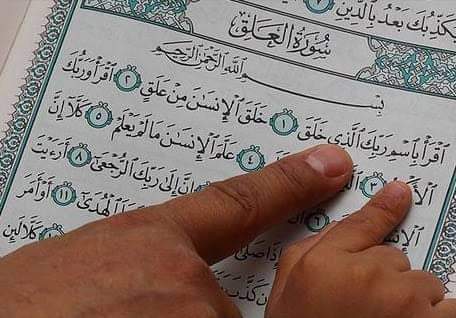 يُكَذِّبُكَ بَعْدُ بِٱلدِّينِ ٧
سُورَةُ ٱلْعَلَقِ
بِسْمِ ٱللَّهِ ٱلرَّحْمَٰنِ ٱلرَّحِيمِ
ٱقْرَأْ بِٱسْمِ رَبِّكَ ٱلَّذِى خَلَقَ ١ خَلَقَ ٱلْإِنسَٰنَ مِنْ عَلَقٍ ٢ ٱقْرَأْ وَرَبُّكَ
٣ ٤ عَلَّمَ ٱلْإِنسَٰنَ مَا لَمْ يَعْلَمْ ٥ كَلَّآ إِنَّ
٦ إِنَّ إِلَىٰ رَبِّكَ ٱلرُّجْعَىٰٓ ٨ أَرَءَيْتَ
إِذَا صَلَّىٰٓ ٱلْهُدَىٰٓ ١١ أَوْ أَمَرَ
إِن كَذَّبَ كَلَّا لَئِن